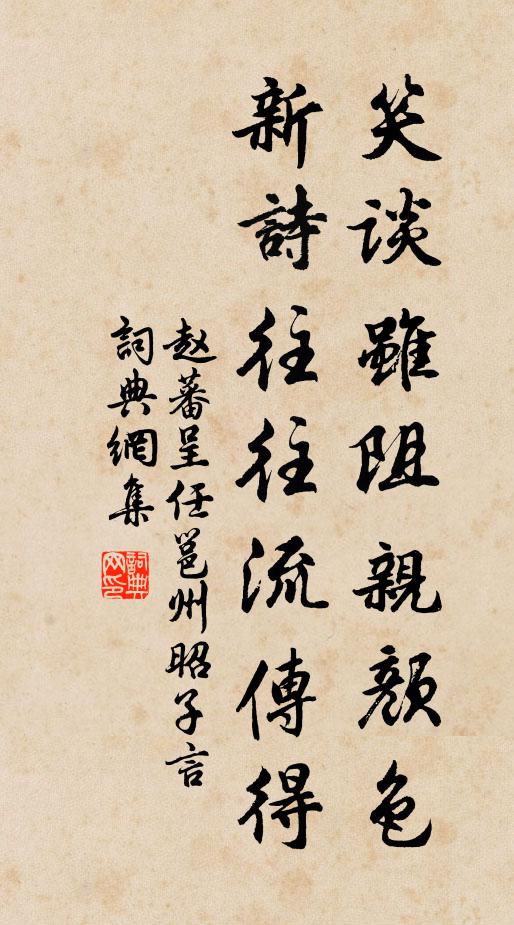 笑谈雖阻親顏色
新詩往往流傳得
赵蕃呈任邕州昭子言
詞典網集
詞典网印